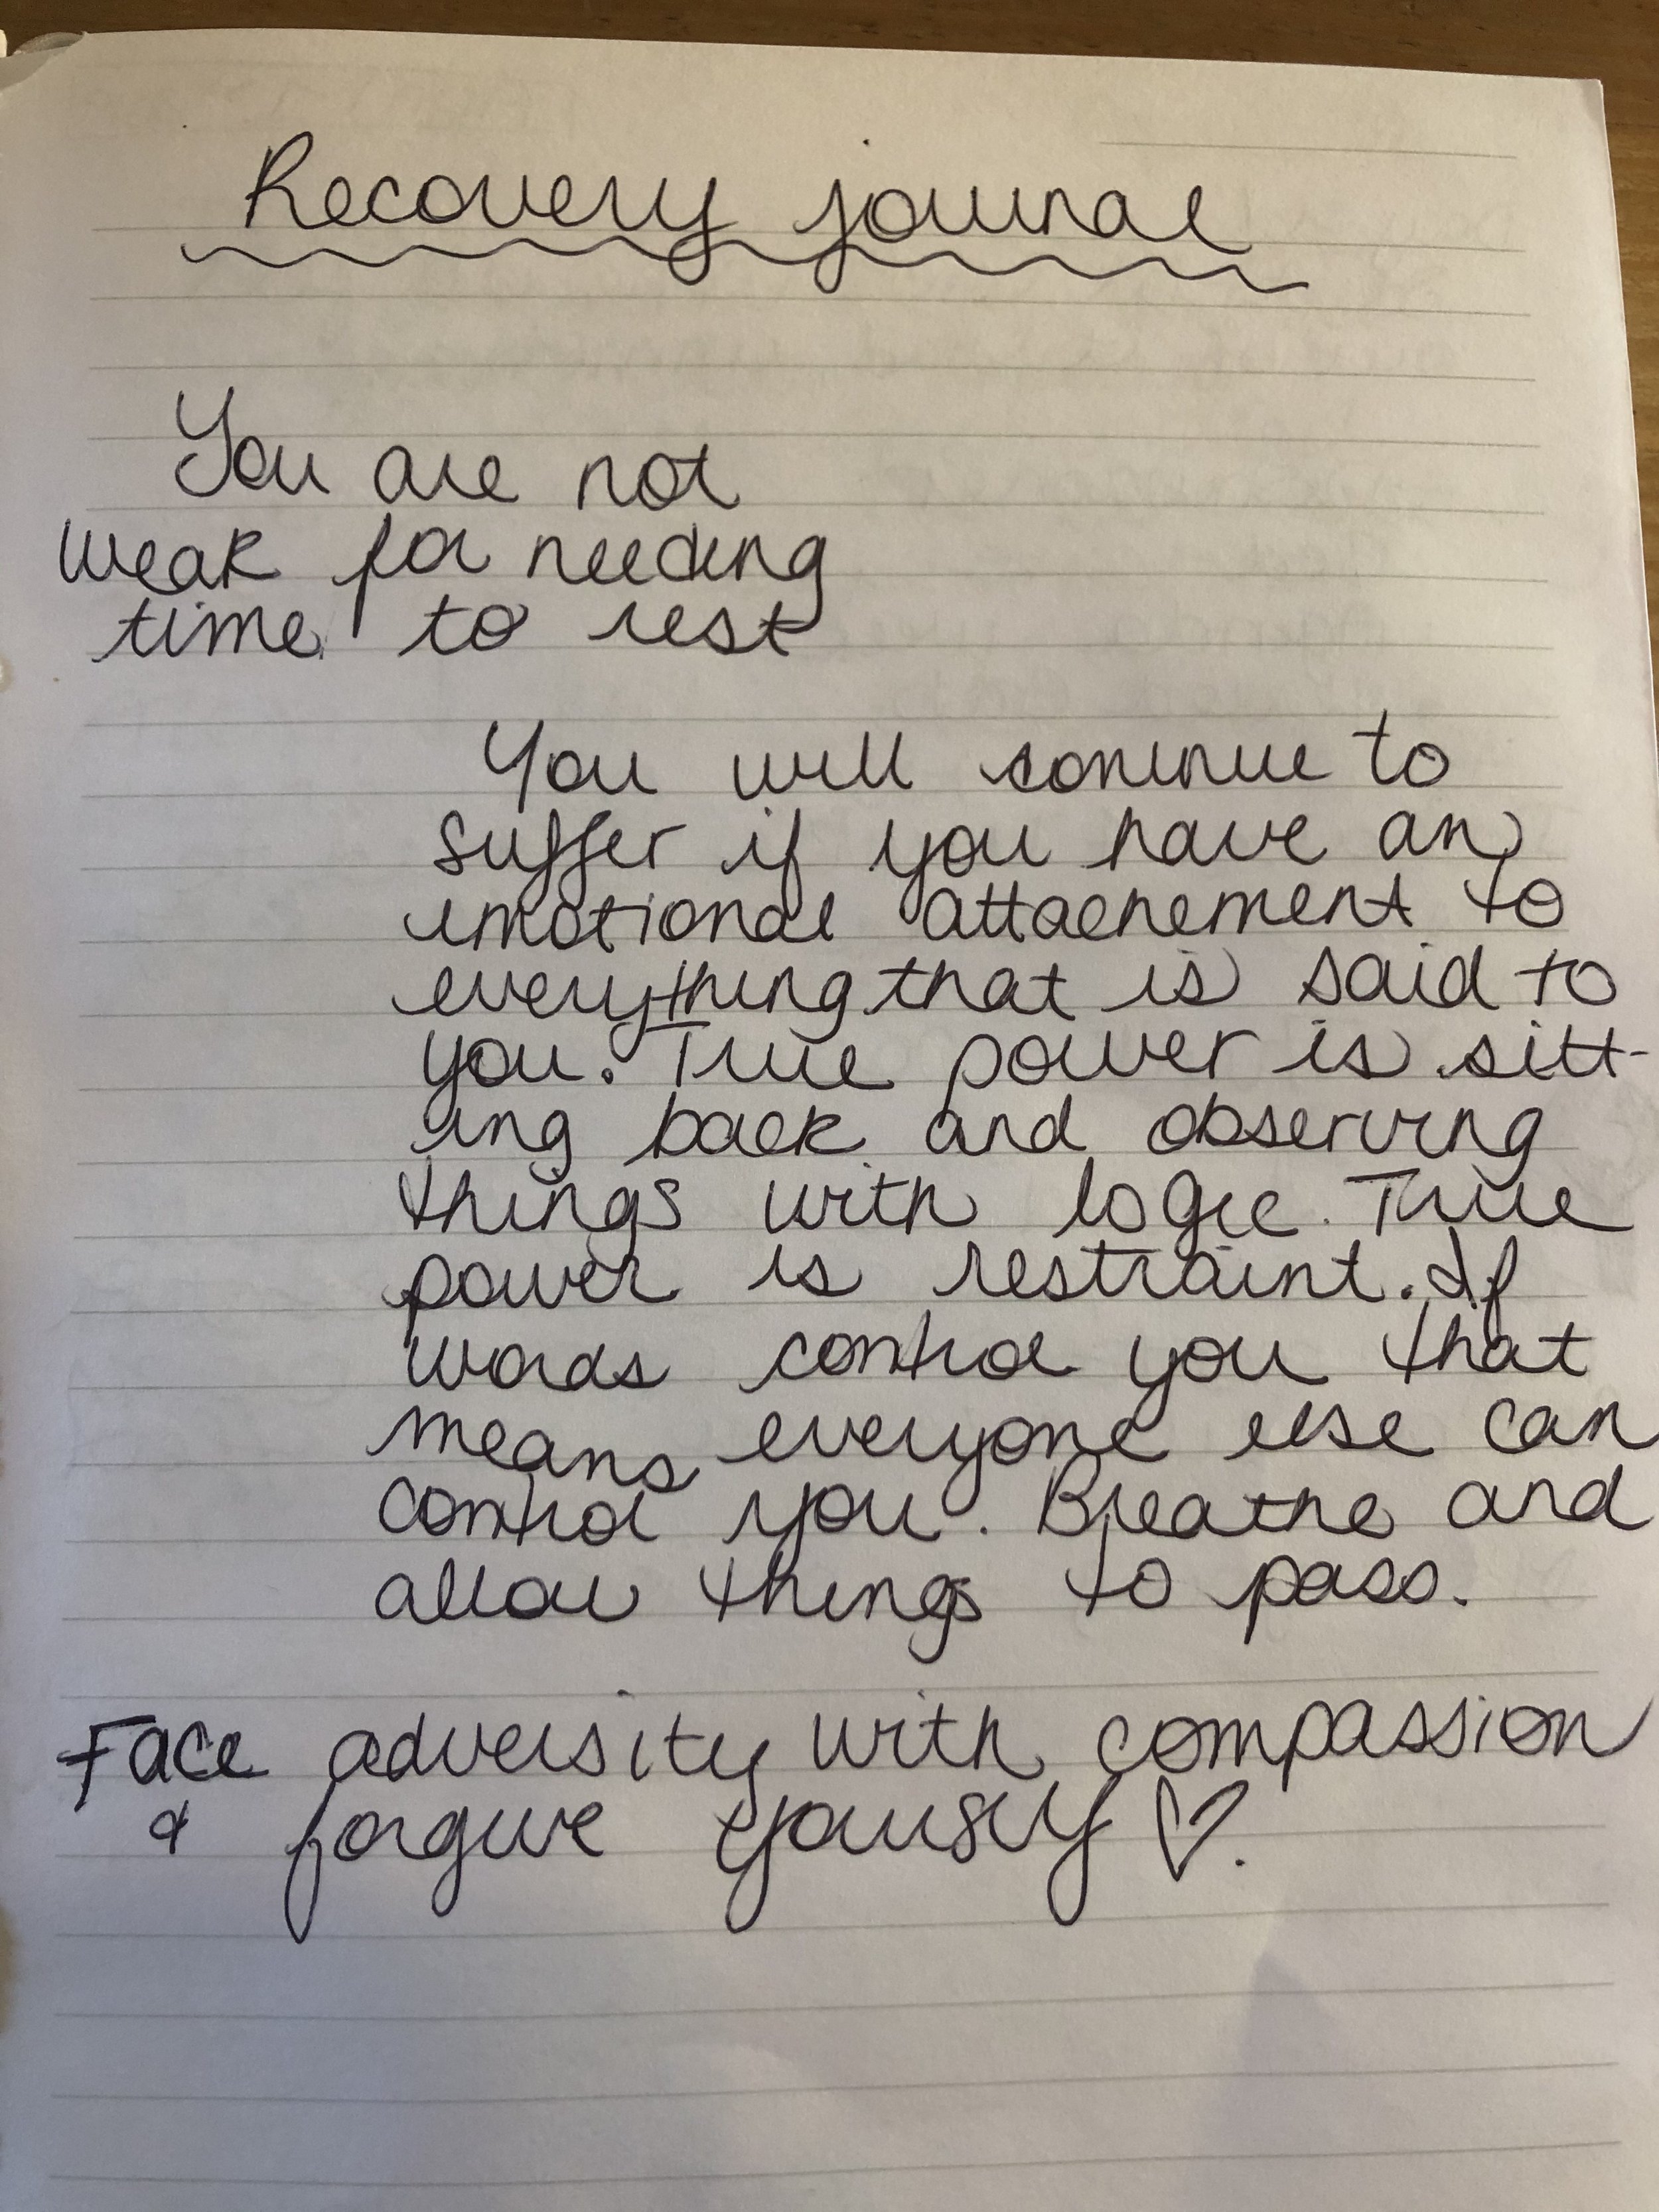 Recovery journal
You are not
weak for needing
time to rest
You will coninue to
suffer if you have an
emotional attachement to
everything that is said to
you. True power is sitt-
ing back and observing
things with logic. True
power is restraint. If
words control you that
means everyone else can
control you. Breathe and
allow things to pass.
Face adversity with compassion
& forgive yourself ♡.